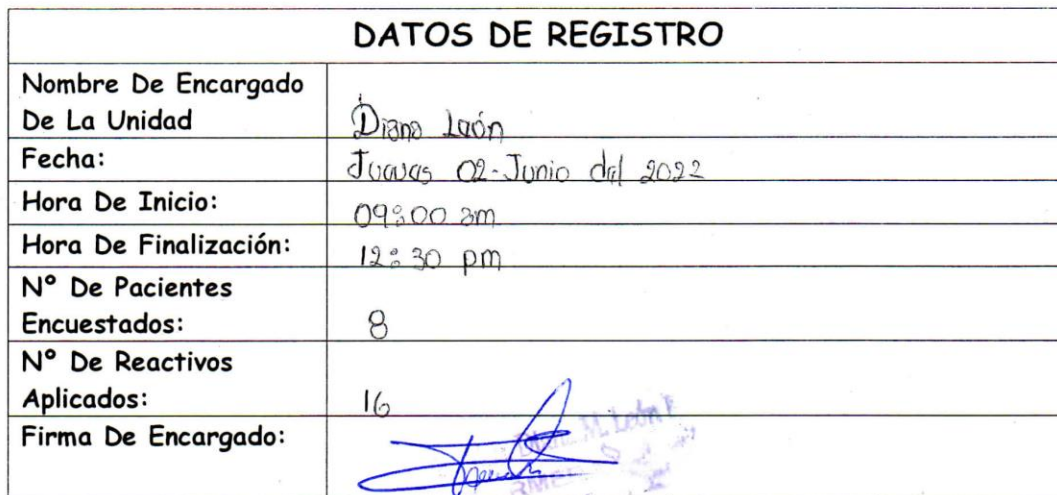 DATOS DE REGISTRO
Nombre De Encargado
De La Unidad
Diana León
Fecha:
Jueves 02-Junio del 2022
Hora De Inicio:
09:00 am
Hora De Finalización:
12:30 pm
Nº De Pacientes
Encuestados:
8
Nº De Reactivos
Aplicados:
16
Firma De Encargado:
M. León